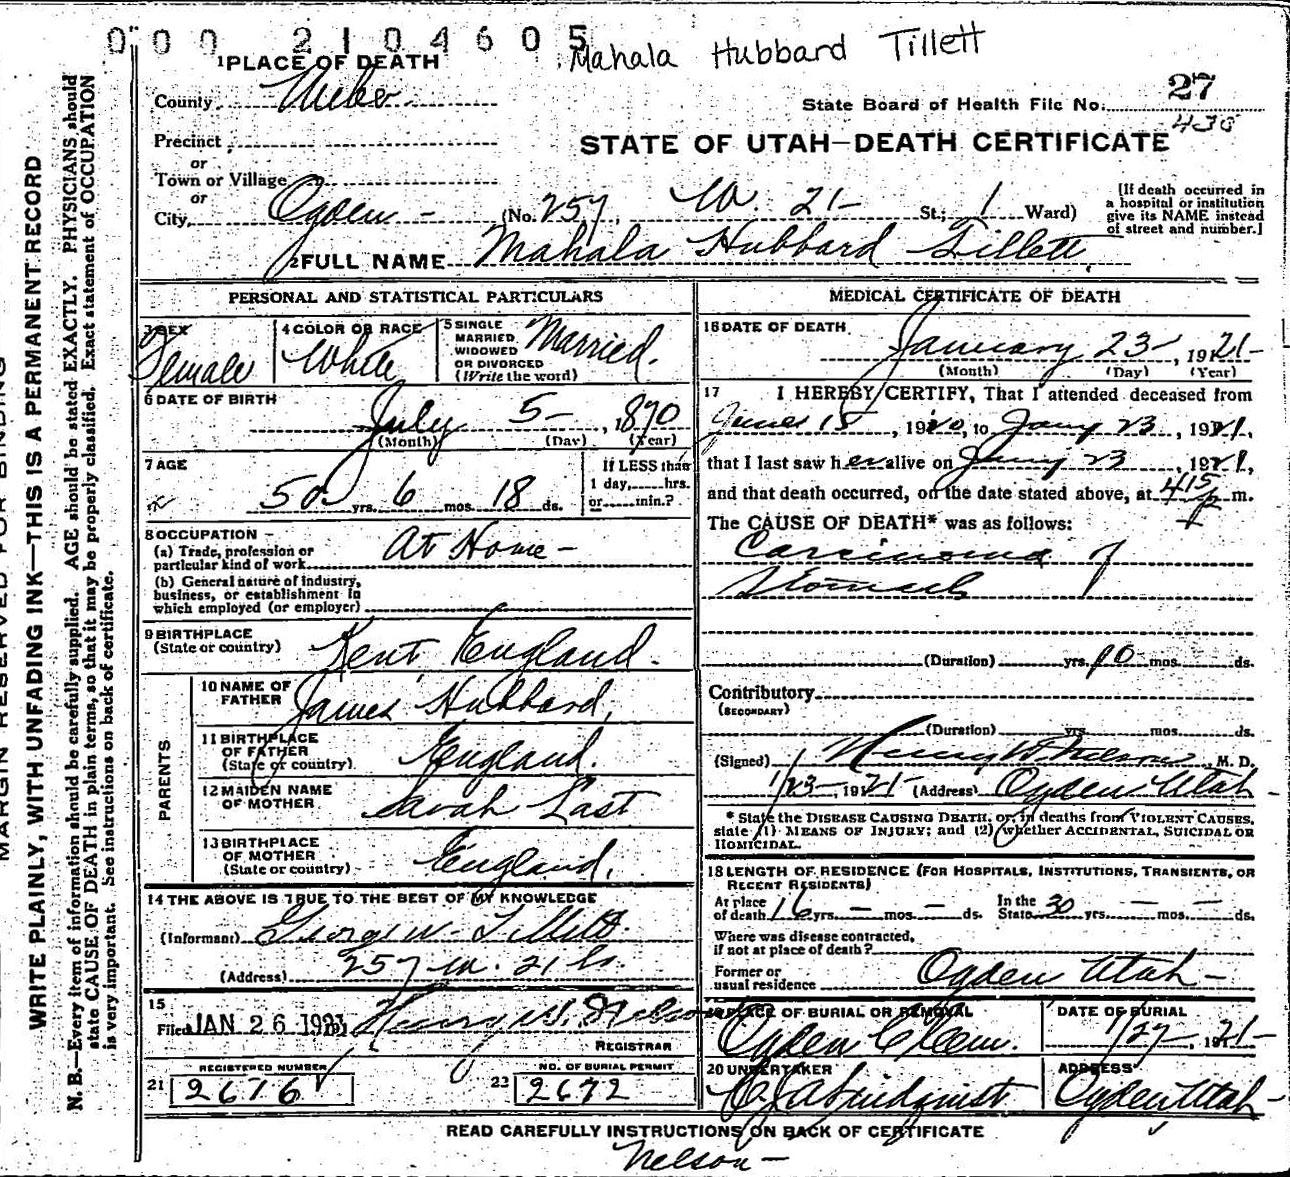 0 0 0 2 1 0 4 6 0 5
Mahala Hubbard Tillett
1 PLACE OF DEATH
County Weber
State Board of Health File No. 27
430
Precinct
STATE OF UTAH—DEATH CERTIFICATE
or
Town or Village
or
City, Ogden - (No. 257, W. 21- St.; 1 Ward)
[If death occurred in a hospital or institution give its NAME instead of street and number.]
2 FULL NAME Mahala Hubbard Tillett.
PERSONAL AND STATISTICAL PARTICULARS
3 SEX Female
4 COLOR OR RACE White
5 SINGLE MARRIED, WIDOWED OR DIVORCED (Write the word) Married.
6 DATE OF BIRTH July 5-, 1870
(Month) (Day) (Year)
7 AGE 50 yrs. 6 mos. 18 ds.
If LESS than 1 day, hrs. or min.?
8 OCCUPATION - At Home -
(a) Trade, profession or particular kind of work
(b) General nature of industry, business, or establishment in which employed (or employer)
9 BIRTHPLACE (State or country) Kent, England.
PARENTS
10 NAME OF FATHER James Hubbard,
11 BIRTHPLACE OF FATHER (State or country) England.
12 MAIDEN NAME OF MOTHER Sarah Last
13 BIRTHPLACE OF MOTHER (State or country) England.
14 THE ABOVE IS TRUE TO THE BEST OF MY KNOWLEDGE
(Informant) George W. Tillett.
(Address) 257 W. 21 St.
15
Filed JAN 26 1921 Henry W. Nelson
REGISTRAR
REGISTERED NUMBER
21 2676
NO. OF BURIAL PERMIT
22 2672
MEDICAL CERTIFICATE OF DEATH
16 DATE OF DEATH January 23-, 1921-
(Month) (Day) (Year)
17 I HEREBY CERTIFY, That I attended deceased from
15, 1920, to Jany 23, 1921,
that I last saw her alive on Jany 23, 1921,
and that death occurred, on the date stated above, at 415 p m.
The CAUSE OF DEATH* was as follows:
Carcinoma of
Stomach
(Duration) yrs. 10 mos. ds.
Contributory
(SECONDARY)
(Duration) yrs. mos. ds.
(Signed) Henry W. Nelson, M. D.
1/23-, 1921- (Address) Ogden Utah-
* State the DISEASE CAUSING DEATH, or, in deaths from VIOLENT CAUSES, state (1) MEANS OF INJURY; and (2) whether ACCIDENTAL, SUICIDAL OR HOMICIDAL.
18 LENGTH OF RESIDENCE (FOR HOSPITALS, INSTITUTIONS, TRANSIENTS, OR RECENT RESIDENTS)
At place of death 16 yrs. - mos. - ds. In the State 30 yrs. - mos. - ds.
Where was disease contracted, if not at place of death?
Former or usual residence Ogden Utah-
19 PLACE OF BURIAL OR REMOVAL Ogden C Cem.
DATE OF BURIAL 1/27-, 1921-
20 UNDERTAKER Lindquist
ADDRESS Ogden, Utah-
READ CAREFULLY INSTRUCTIONS ON BACK OF CERTIFICATE
Nelson-
MARGIN RESERVED FOR BINDING
WRITE PLAINLY, WITH UNFADING INK—THIS IS A PERMANENT RECORD
N. B.—Every item of information should be carefully supplied. AGE should be stated EXACTLY. PHYSICIANS should
state CAUSE OF DEATH in plain terms, so that it may be properly classified. Exact statement of OCCUPATION
is very important. See instructions on back of certificate.